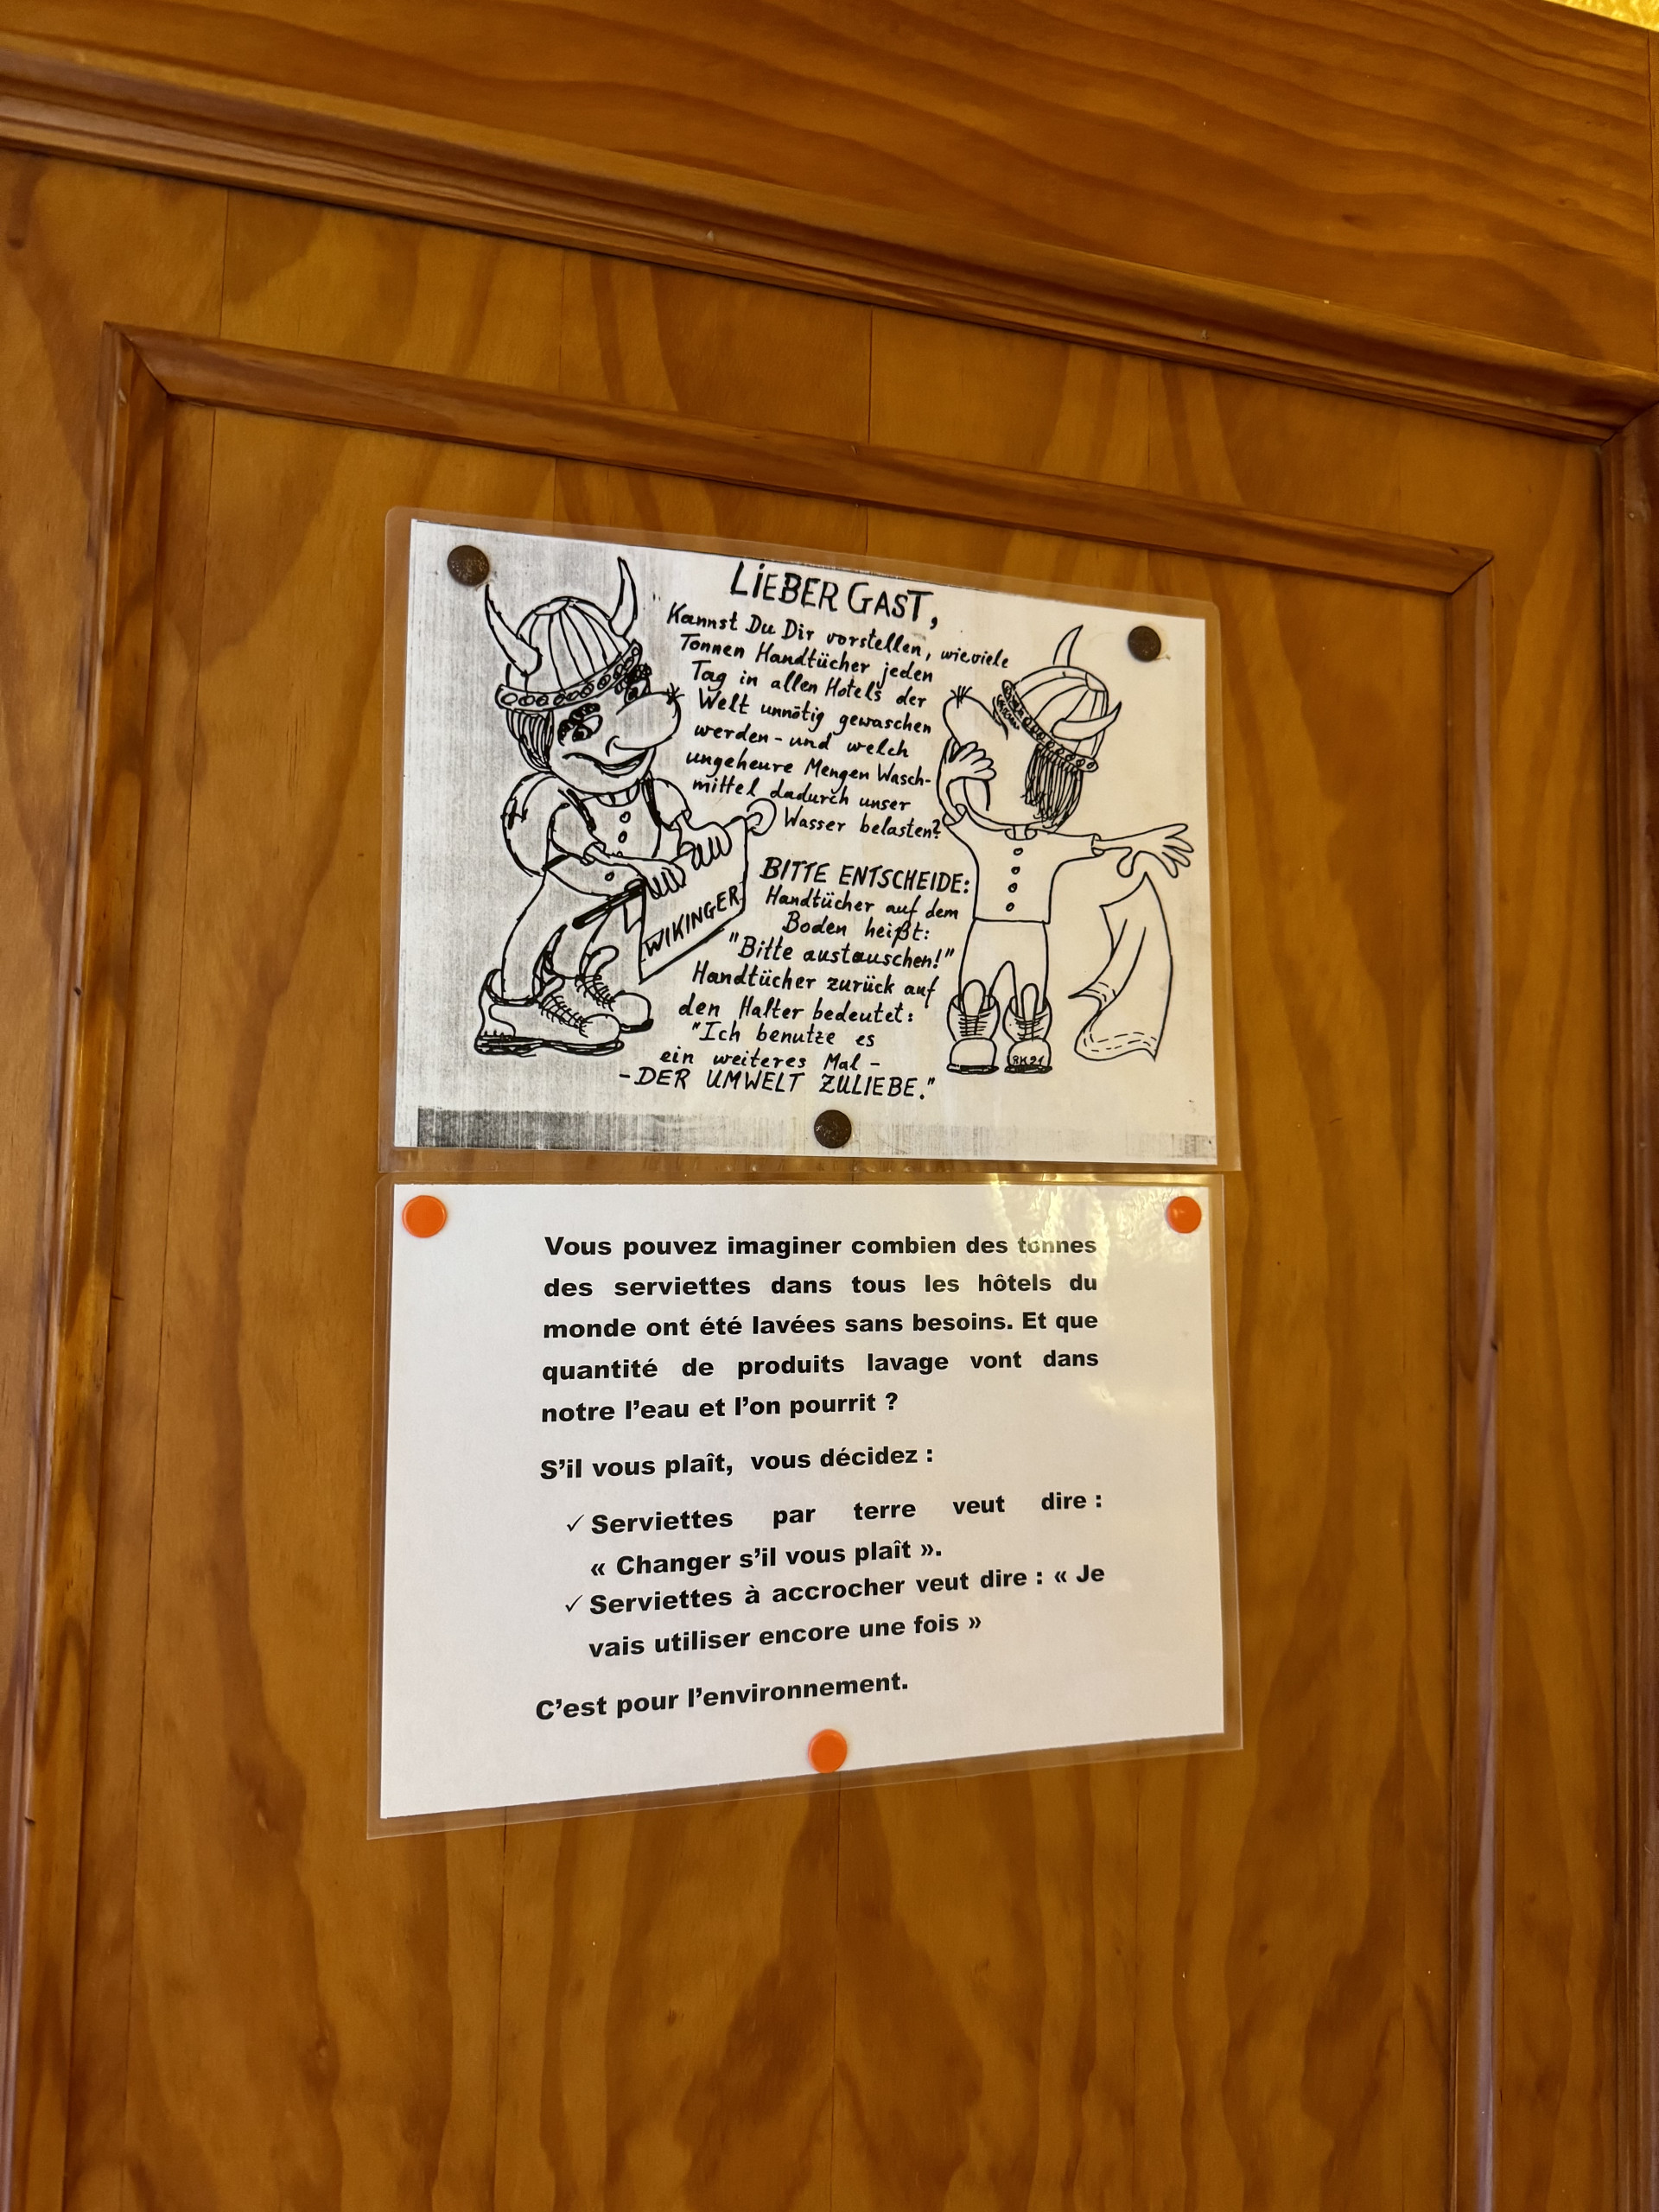 LIEBER GAST,
Kannst Du Dir vorstellen, wieviele
Tonnen Handtücher jeden
Tag in allen Hotels der
Welt unnötig gewaschen
werden - und welch
ungeheure Mengen Wasch-
mittel dadurch unser
Wasser belasten?
BITTE ENTSCHEIDE:
Handtücher auf dem
Boden heißt:
"Bitte austauschen!"
Handtücher zurück auf
den Halter bedeutet:
"Ich benutze es
ein weiteres Mal -
- DER UMWELT ZULIEBE."
WIKINGER
Vous pouvez imaginer combien des tonnes
des serviettes dans tous les hôtels du
monde ont été lavées sans besoins. Et que
quantité de produits lavage vont dans
notre l'eau et l'on pourrit ?
S'il vous plaît, vous décidez :
✓ Serviettes par terre veut dire :
« Changer s'il vous plaît ».
✓ Serviettes à accrocher veut dire : « Je
vais utiliser encore une fois »
C'est pour l'environnement.